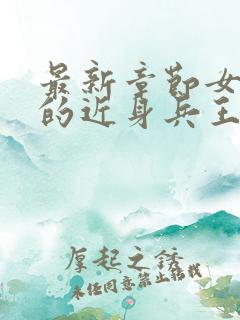 最新章节女
的近身兵王
厚起之诱
未经同意禁止转载